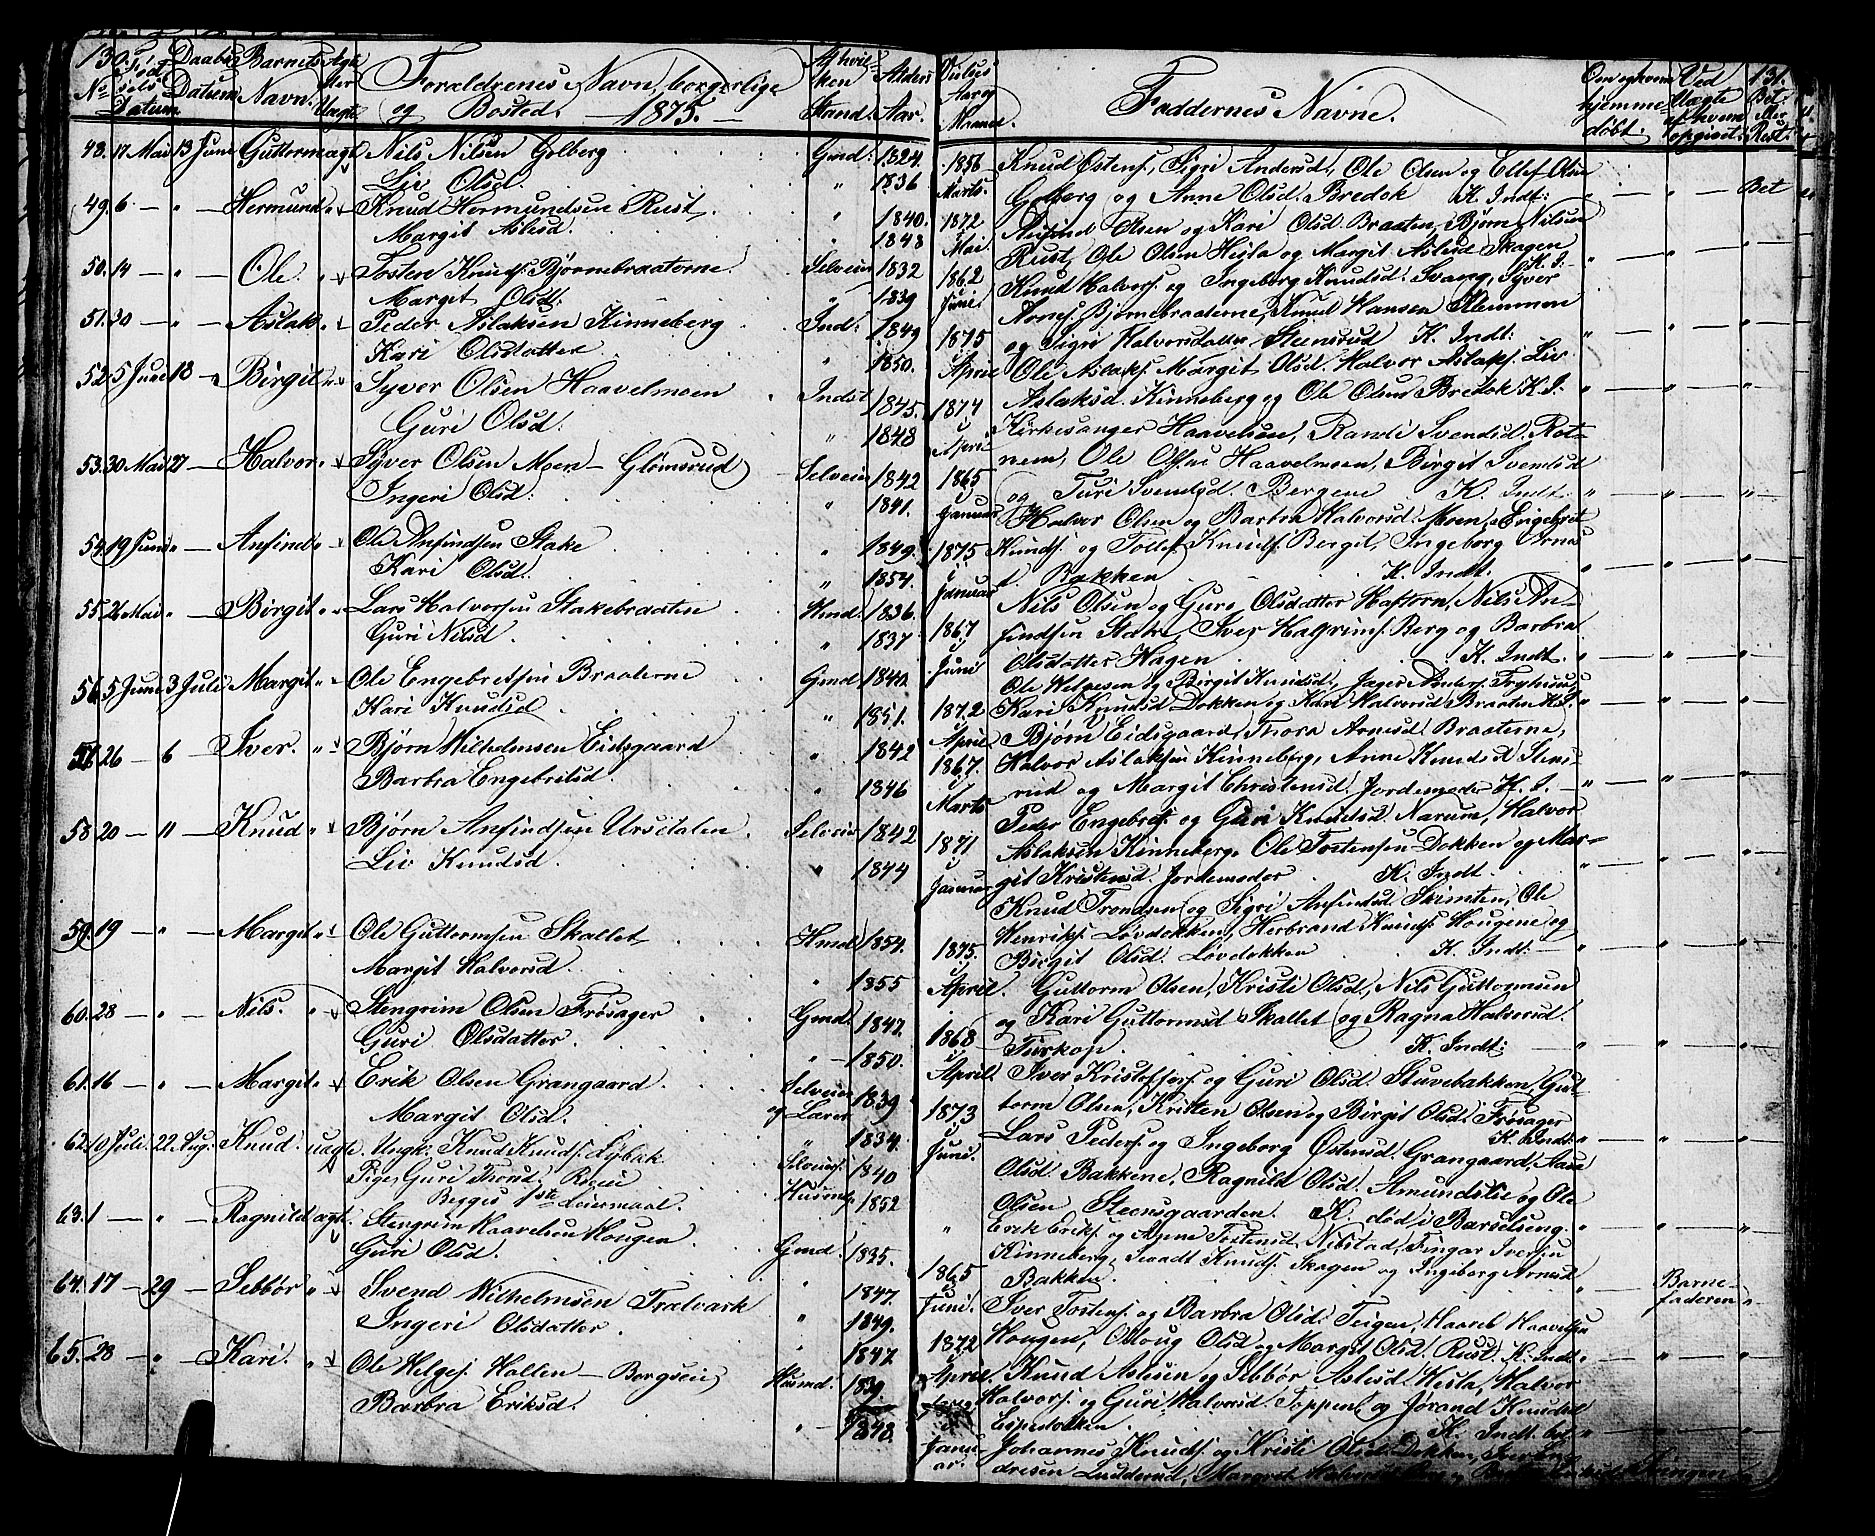 130.
No
Fødsels Datum
Daabs Datum
Barnets Navn.
Ægte eller Uægte
Forældrenes Navn, borgerlige
og Bosted. — 1875. —
Af hvilken Stand.
Alders Aar.
Vielses Aar og Maaned.
Faddernes Navne.
Om og hvem hjemmedøbt.
Ved Uægte af hvem opgivet.
131.
48. 17 Mai 13 June Guttorm ægt Nils Nilsen Golberg Gmd: 1824. 1856
Liv Olsd. " 1836 Marts.
49. 6 — " — Hermund " Knud Hermundsen Rust " 1840. 1872
Margit Aslesd. " 1848 Mai
50. 14 — " — Ole " Tosten Knuds. Bjørnebraaterne Selveier 1832 1862
Margit Olsd. " 1839 Juni
51. 30 — " — Aslak " Peder Aslaksen Kinneberg Ind: 1849 1875
Kari Olsdatter " 1850. April
52. 5 June 13 " Birgit " Syver Olsen Haavelmoen Indst 1845. 1874
Guri Olsd. " 1848 April
53. 30 Mai 27 — Halvor " Syver Olsen Moen — Glømsrud Selveier 1842 1865
Ingeri Olsd. " 1841. Januar
54. 19 Juni " — Anfind " Ole Anfindsen Stake " 1849. 1875
Kari Olsd. " 1854. Januar
55. 26 Mai " — Birgit " Lars Halvorsen Stakebraaten Hmd: 1836. 1867
Guri Nilsd " 1837 Juni
56. 5 June 3 Juli Margit " Ole Engebretsen Braaterne Gmd 1840. 1872
Kari Knudsd " 1851. April
57. 26 — 6 — Iver. " Bjørn Wilhelmsen Eidsgaard " 1842 1867.
Barbra Engebretsd. " 1846 Marts
58. 20 — " — Knud " Bjørn Anfindsen Ursdalen Selveier 1842 1871
Liv Knudsd. " 1844 Januar
59. 19 " — Margit " Ole Guttormsen Skallet Hmd 1854. 1875.
Margit Halvorsd. " 1855 April.
60. 28 — " — Nils. " Stengrim Olsen Frøsager Gmd. 1847. 1868
Guri Olsdatter. " 1850. April.
61. 16 — " — Margit " Erik Olsen Grangaard Selveier og Lærer 1839 1873
Margit Olsd. " 1834. Juni.
62. 10 Juli. 22 Aug. Knud. uægte Ungk. Knud Knuds. Lybæk Selveiers. 1840
Pige Guri Thorsd. Husmds. 1852
Begges 1ste Leiermaal.
63. 1 — " — Ragnild ægt. Stengrim Haavelsen Hougen Gmd. 1835. 1865
Guri Olsd. " 1847. Juni.
64. 17 — 29 — Sebbør " Svend Wilhelmsen Trælvark " 1849. 1872
Ingeri Olsdatter. " 1847 April
65. 28 — " — Kari. " Ole Helges. Hallen — Borgseie Husmd. 1839.
Barbra Eriksd. " 1848. Januar.
Knud Østens., Sigri Andersd., Ole Olsen og Ellef Olsen
Golberg og Anne Olsd. Bredok K. Indt: " — " — Bet
Anfind Olsen og Kari Olsd. Braaten, Bjørn Nilsen
Rust, Ole Olsen Hesla og Margit Aslesd Skagen K. I.
Knud Halvors. og Ingeborg Knudsd. Svang, Syver
Arnes. Bjørnebraaterne, Knud Hansen Klemmen
og Sigri Halvorsdatter Steensrud K. Indt:
Ole Aslaks. Margit Olsd. Halvor Aslaks. Liv
Aslaksd. Kinneberg og Ole Olsen Bredok K. I.
Kirkesanger Haavelsen, Randi Svendsd. Rotnem, Ole Olsen Haavelmoen, Birgit Svendsd
og Turi Svendsd. Bergene K. Indt
Halvor Olsen og Barbra Halvorsd. Moen, Engebret
Knuds. og Tollef Knuds. Bergit, Ingeborg Arnesd
Bakken K. Indt.
Nils Olsen og Guro Olsdatter Haftorn, Nils Anfindsen Stake, Iver Halgrims. Berg og Barbra
Olsdatter Hagen K. Indt.
Ole Helgesen og Birgit Knudsd.
Kari Knudsd Dokken og Kari Halvorsd Braaten K. I.
Bjørn Eidsgaard, Thora Arnesd Braaterne,
Halvor Aslaksen Kinneberg, Anne Knudsd Stensrud og Margit Christensd. Jordemoder K. I.
Peder Engebrets. og Guri Knudsd Narum, Halvor
Aslaksen Kinneberg, Ole Tostensen Dokken og Margit Kristensd. Jordemoder K. Indt.
Knud Trondsen og Sigri Anfindsd Skimten, Ole
Henriks. Løvdokken, Herbrand Knuds. Hougene og
Birgit Olsd. Løvdokken K. Indt:
Guttorm Olsen, Kristi Olsd, Nils Guttormsen
og Kari Guttormsd Skallet og Ragna Halvorsd.
Turkop. K. Indt:
Iver Kristoffers. og Guri Olsd. Stuvebakken, Guttorm Olsen, Kristen Olsen og Birgit Olsd. Frøsager
K. Indt:
Lars Peders. og Ingeborg Østensd. Grangaard, Aase
Olsd. Bakkene, Ragnild Olsd. Amundslie og Ole
Olsen Steensgaarden. K. død i Barselseng.
Erik Eriks. og Anne Tostensd. Nibstad, Fingar Iversen
Kinneberg, Knuds. Skagen og Ingeborg Arnesd
Bakken. Barnefaderen
Iver Tostens. og Barbra Olsd. Teigen, Haarel Haavelsen
Hougen, Olsd og Margit Olsd. Rust. K. Indt.
Knud Aslesen og Sebbør Aslesd. Hesla, Halvor
Halvors. og Guri Halvorsd. Toppen og Jørand Knudsd
Espedokken. K. Indt.
Johannes Knuds. og Kristi Olsd. Dokken,